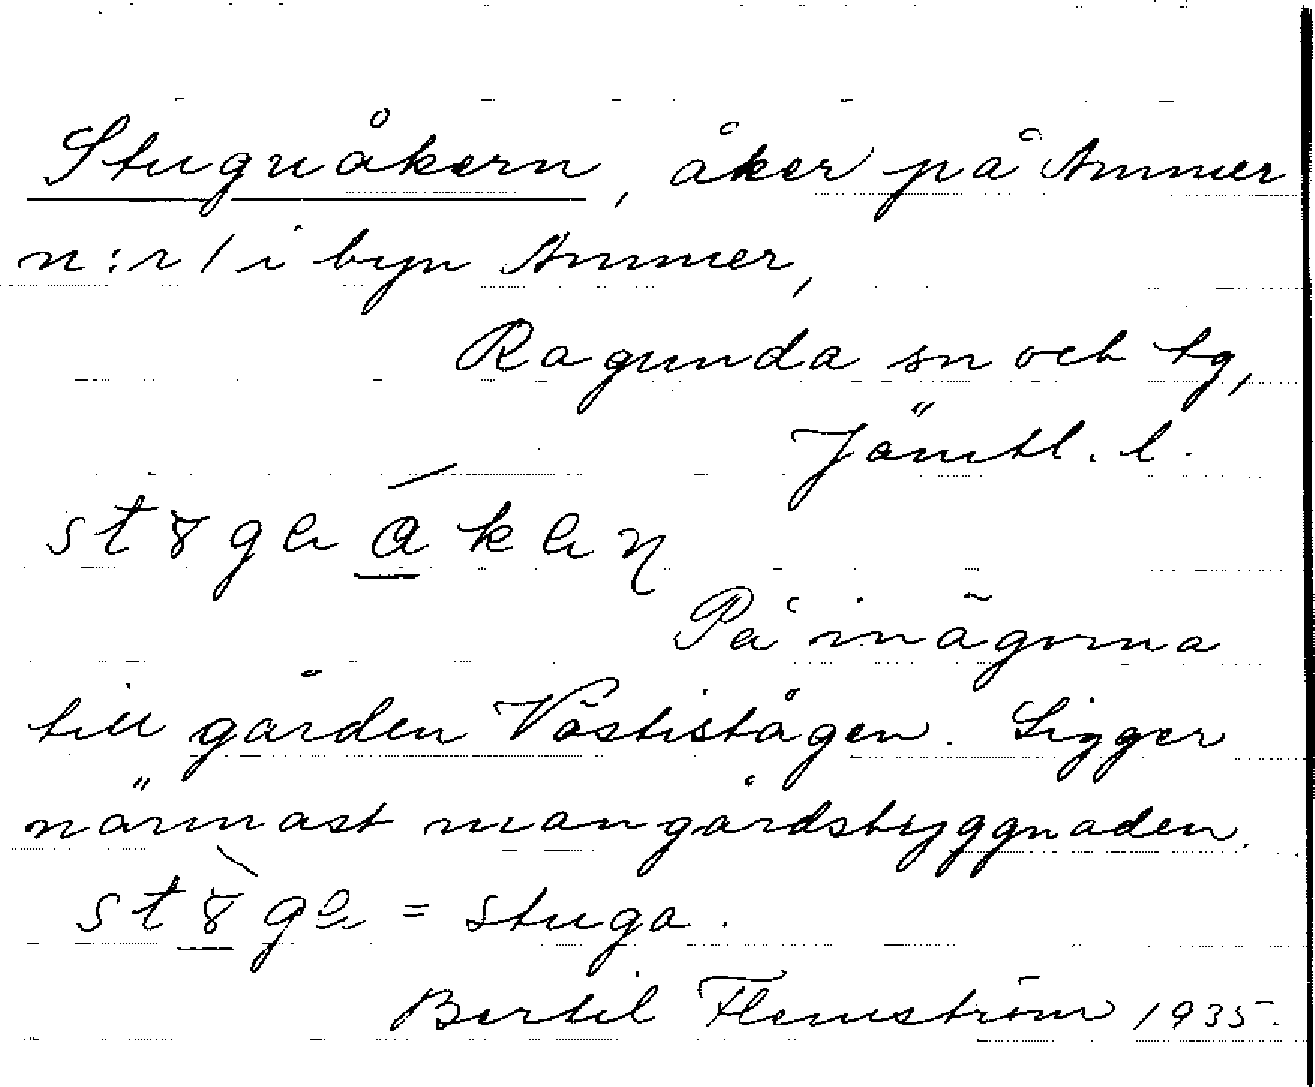 Stuguåkern, åker på Ammer
n:r 1 i byn Ammer,
Ragunda sn och tg,
Jämtl. l.
På inägorna
till gården Västistågen. Ligger
närmast mangårdsbyggnaden.
= stuga.
Bertil Flemström 1935.